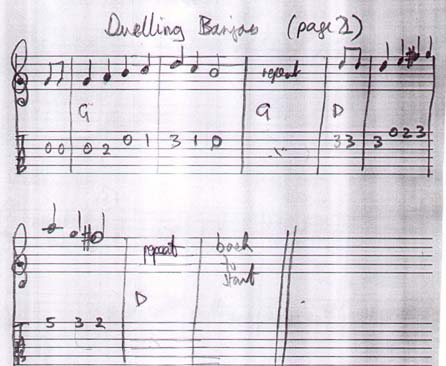 Duelling Banjos (page 1)
repeat
G G D
0 0 0 2 0 1 3 1 0 3 3 3 0 2 3
repeat back
to
start
D
5 3 2